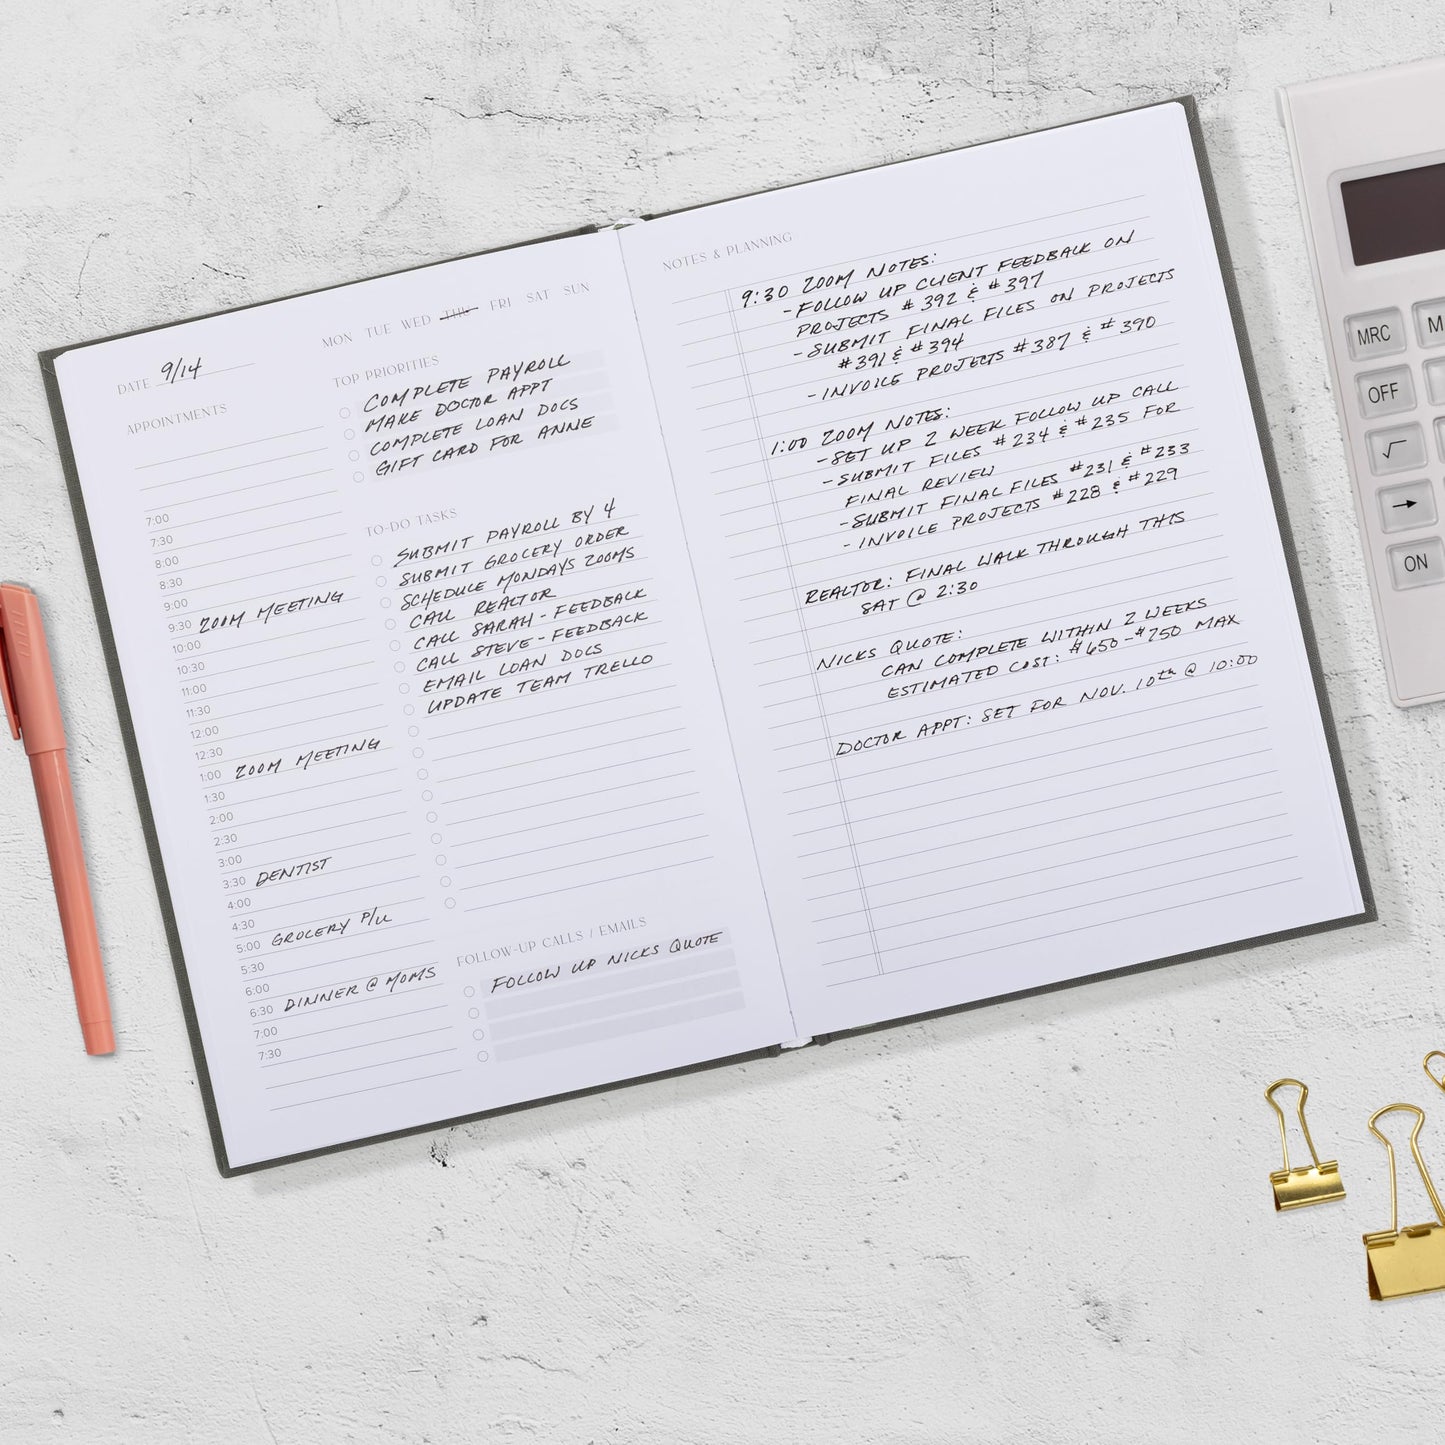 MON TUE WED THU FRI SAT SUN
DATE 9/14
APPOINTMENTS
7:00
7:30
8:00
8:30
9:00
9:30 ZOOM MEETING
10:00
10:30
11:00
11:30
12:00
12:30
1:00 ZOOM MEETING
1:30
2:00
2:30
3:00
3:30 DENTIST
4:00
4:30
5:00 GROCERY P/U
5:30
6:00
6:30 DINNER @ MOMS
7:00
7:30
TOP PRIORITIES
COMPLETE PAYROLL
MAKE DOCTOR APPT
COMPLETE LOAN DOCS
GIFT CARD FOR ANNE
TO-DO TASKS
SUBMIT PAYROLL BY 4
SUBMIT GROCERY ORDER
SCHEDULE MONDAYS ZOOMS
CALL REALTOR
CALL SARAH - FEEDBACK
CALL STEVE - FEEDBACK
EMAIL LOAN DOCS
UPDATE TEAM TRELLO
FOLLOW-UP CALLS / EMAILS
FOLLOW UP NICKS QUOTE
NOTES & PLANNING
9:30 ZOOM NOTES:
- FOLLOW UP CLIENT FEEDBACK ON
PROJECTS #392 & #397
- SUBMIT FINAL FILES ON PROJECTS
#391 & #394
- INVOICE PROJECTS #387 & #390
1:00 ZOOM NOTES:
- SET UP 2 WEEK FOLLOW UP CALL
- SUBMIT FILES #234 & #235 FOR
FINAL REVIEW
- SUBMIT FINAL FILES #231 & #233
- INVOICE PROJECTS #228 & #229
REALTOR: FINAL WALK THROUGH THIS
SAT @ 2:30
NICKS QUOTE:
CAN COMPLETE WITHIN 2 WEEKS
ESTIMATED COST: $650-$750 MAX
DOCTOR APPT: SET FOR NOV. 10th @ 10:00
MRC M
OFF
√
→
ON